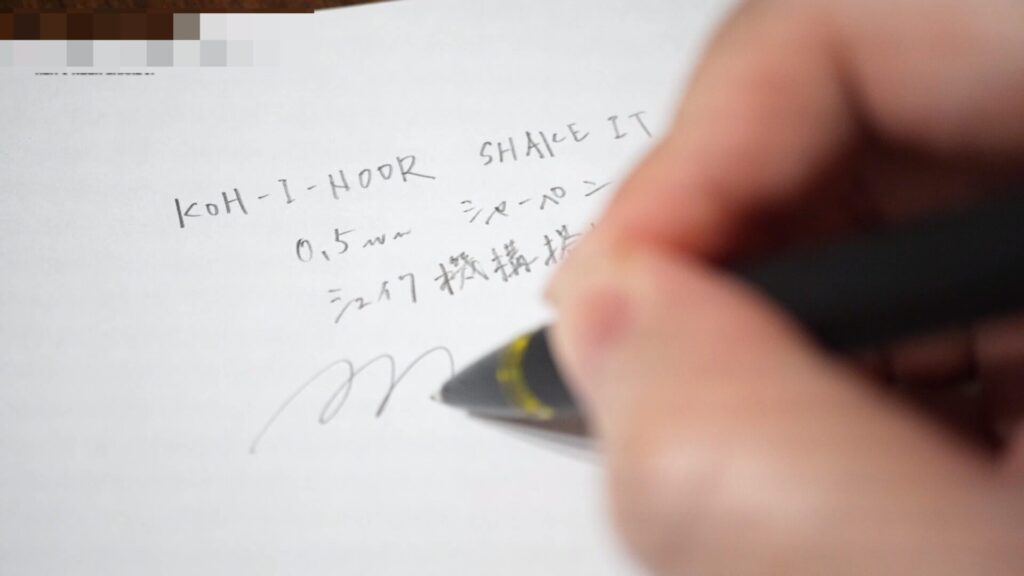 KOH-I-NOOR SHAKE IT
0.5mm シャーペン
シェイク機構搭